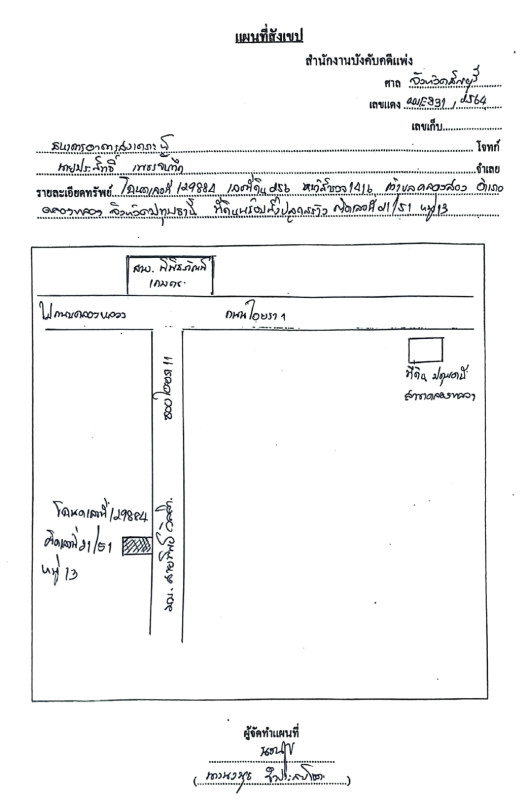 แผนที่สังเขป
สำนักงานบังคับคดีแพ่ง
ศาล จังหวัดธัญบุรี
เลขแดง ผบE831 / 2564
เลขเก็บ
ธนาคารอาคารสงเคราะห์ โจทก์
นายประสิทธิ์ จำเลย
รายละเอียดทรัพย์ โฉนดเลขที่ 129884 เลขที่ดิน 256 หน้าสำรวจ 1416 ตำบลคลองสอง อำเภอ
คลองหลวง จังหวัดปทุมธานี ที่ดินพร้อมสิ่งปลูกสร้าง เลขที่ 21/51 หมู่ 13
สนง. พิพิธภัณฑ์
เกษตร
ไปถนนคลองหลวง
ถนน ไอยรา 1
ซอย ไอยรา 11
ที่ดิน ปทุมธานี
สาขาคลองหลวง
โฉนดเลขที่ 129884
เลขที่ 21/51
หมู่ 13
ผู้จัดทำแผนที่